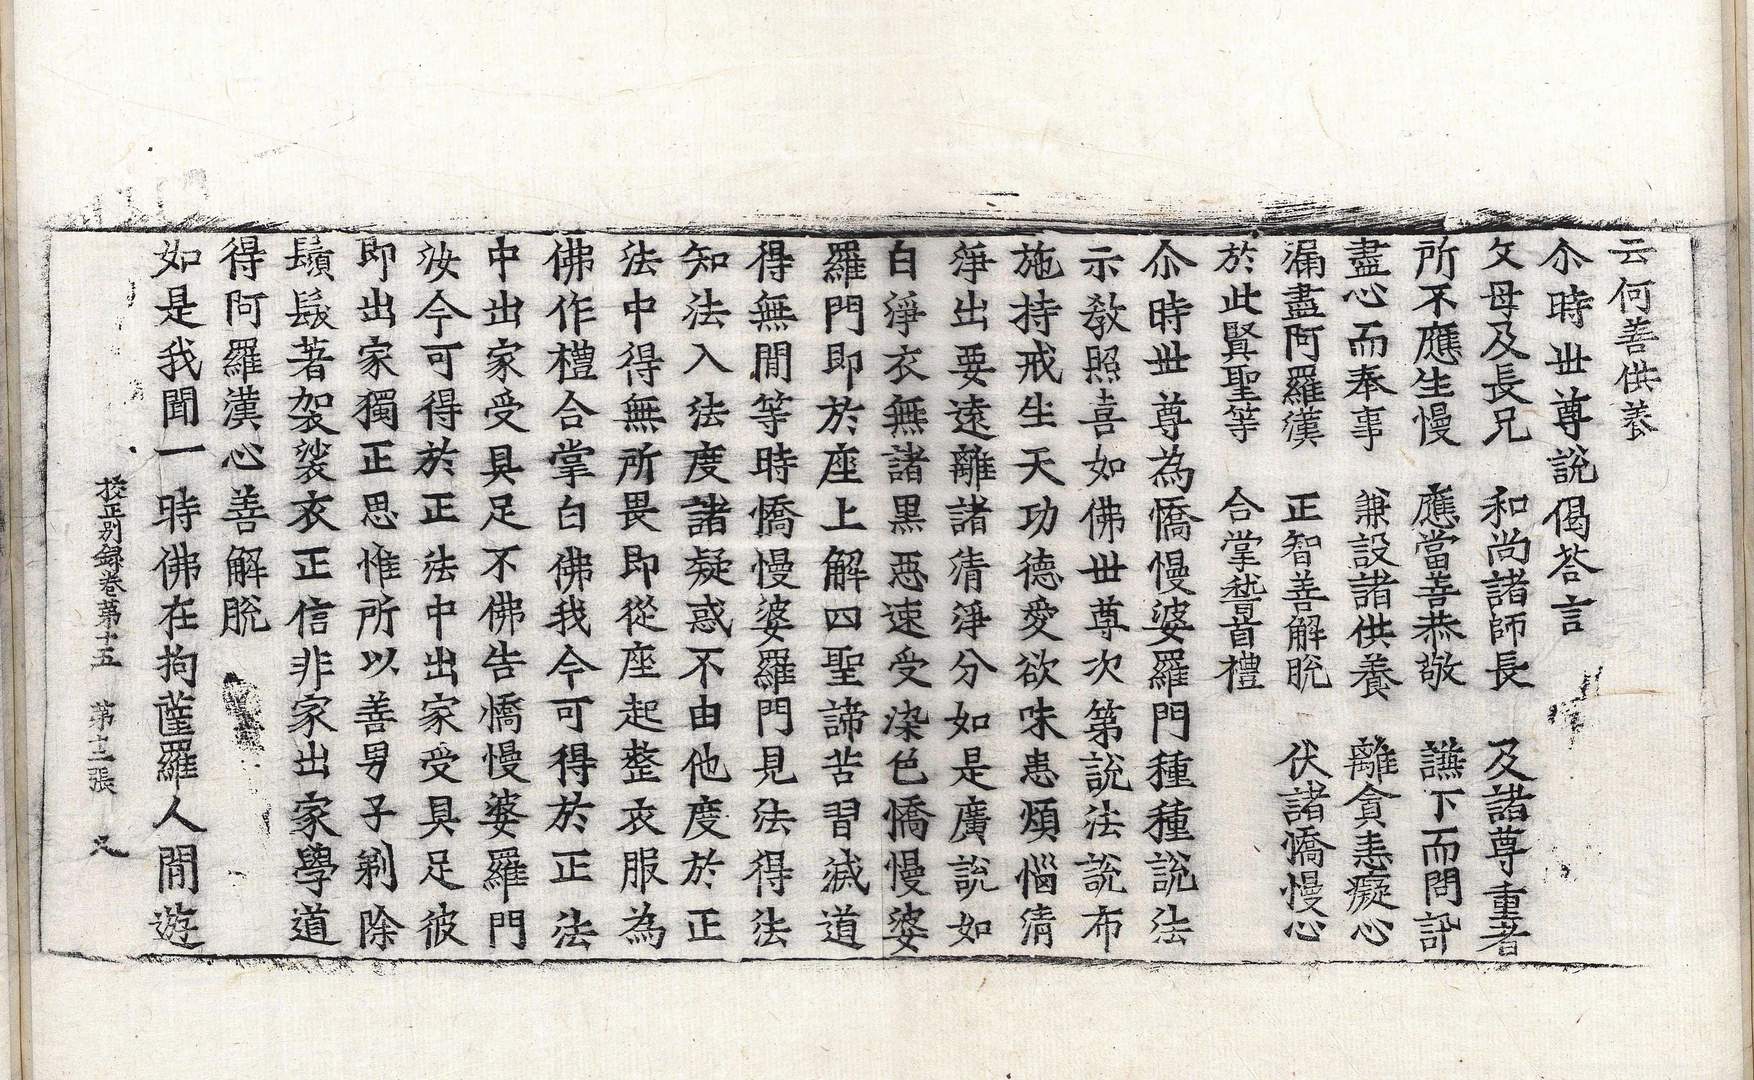 云何善供養
尒時世尊說偈荅言
父母及長兄　和尚諸師長　及諸尊重者
所不應生慢　應當善恭敬　謙下而問訊
盡心而奉事　兼設諸供養　離貪恚癡心
漏盡阿羅漢　正智善解脫　伏諸憍慢心
於此賢聖等　合掌嵆首禮
尒時世尊為憍慢婆羅門種種說法
示教照喜如佛世尊次第說法說布
施持戒生天功德愛欲味患煩惱清
淨出要遠離諸清淨分如是廣說如
白淨衣無諸黑惡速受染色憍慢婆
羅門即於座上解四聖諦苦習滅道
得無閒等時憍慢婆羅門見法得法
知法入法度諸疑惑不由他度於正
法中得無所畏即從座起整衣服為
佛作禮合掌白佛我今可得於正法
中出家受具足不佛告憍慢婆羅門
汝今可得於正法中出家受具足彼
即出家獨正思惟所以善男子剃除
鬚髮著袈裟衣正信非家出家學道
得阿羅漢心善解脫
如是我聞一時佛在拘薩羅人閒遊
校正別録卷第十五　第十二張　又